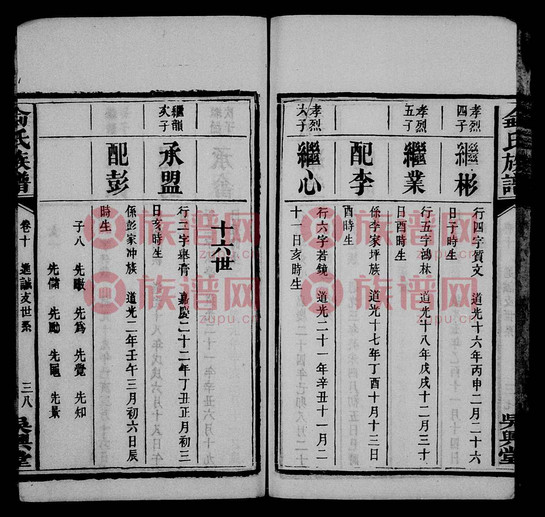 孝烈四子
繼彬
行四字賀文 道光十六年丙申二月二十六
日子時生
孝烈五子
繼業
行五字鴻林 道光十八年戊戌十二月三十
日酉時生
配李
係李家坪族 道光十七年丁酉十月十三日
酉時生
孝烈六子
繼心
行六字若鏡 道光二十一年辛丑十一月二
十一日亥時生
吳興堂
十六世
繼韻亥子
承盟
行二字舉膏 嘉慶二十二年丁丑正月初三
日亥時生
配彭
係彭家冲族 道光二年壬午三月初六日辰
時生
子八 先 先為 先覺 先知
先儲 先勳 先 先景
俞氏族譜
卷十
進誠支世系
三八
吳興堂
族谱网
zupu.cn
族谱网
zupu.cn
族谱网
zupu.cn
族谱网
zupu.cn